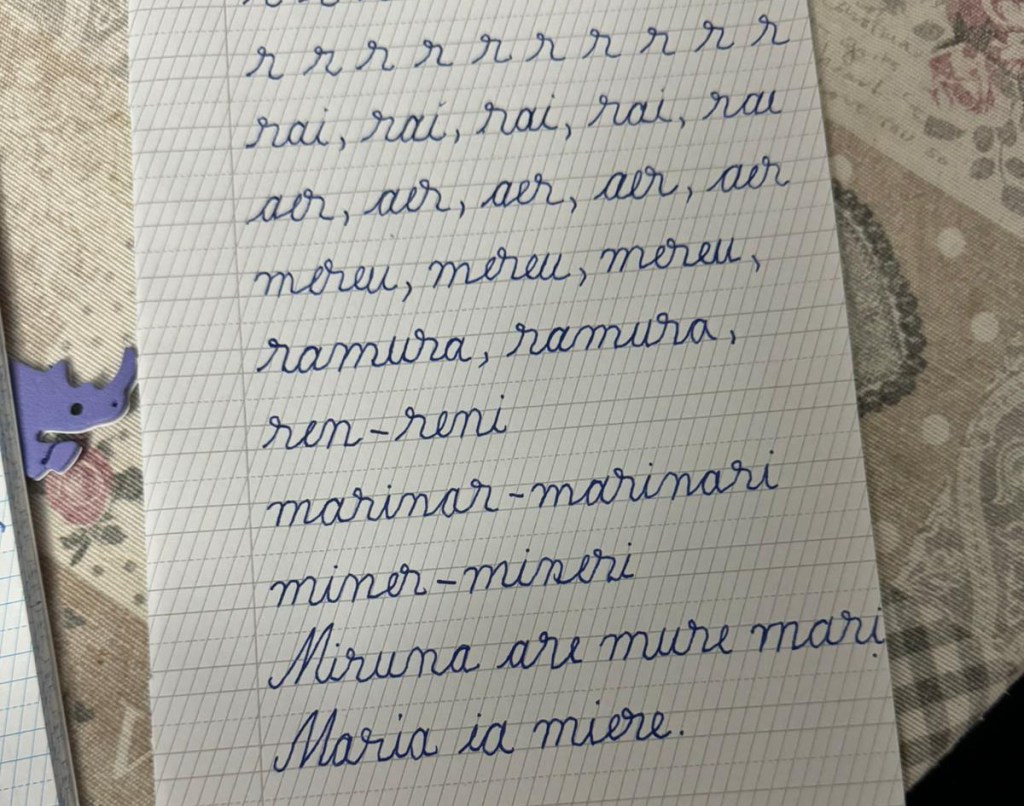 r r r r r r r r r r
rai, rai, rai, rai, rai
aer, aer, aer, aer, aer
mereu, mereu, mereu,
ramura, ramura,
ren-reni
marinar-marinari
miner-mineri
Miruna are mure mari.
Maria ia miere.